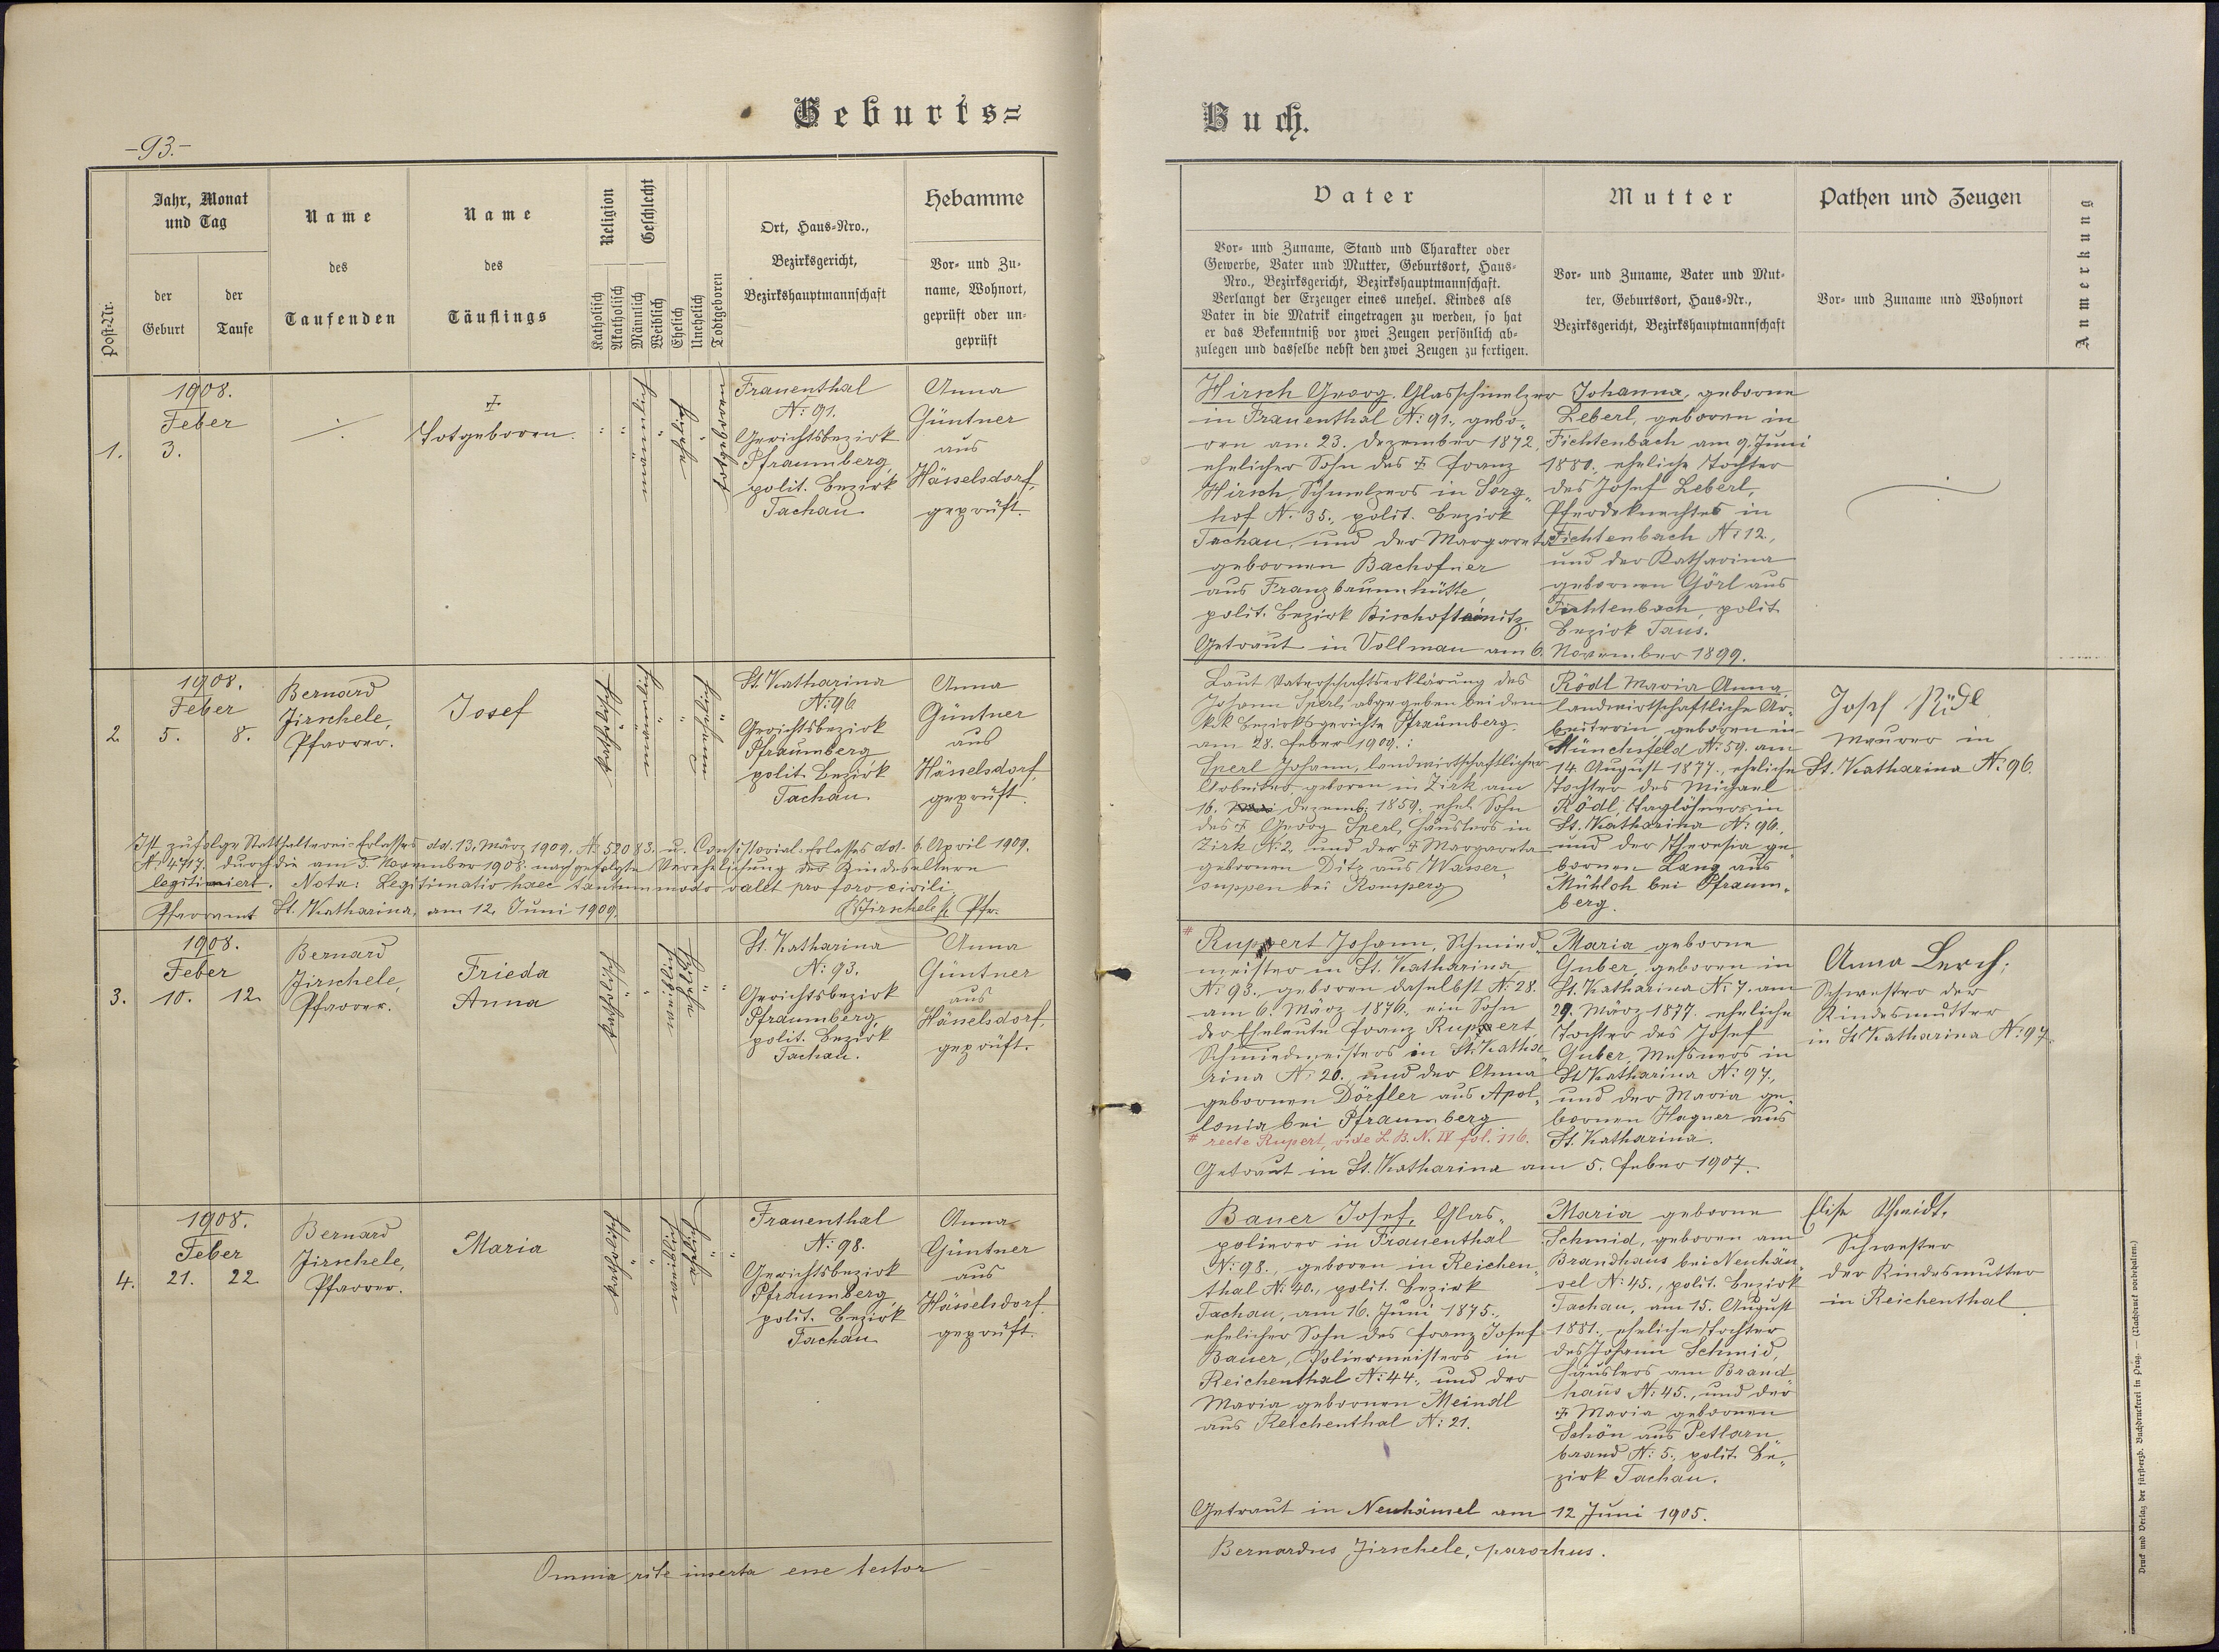 Geburts=
Buch.
-93.-
Post-Nr.
Jahr, Monat
und Tag
der
Geburt
der
Taufe
Name
des
Taufenden
Name
des
Täuflings
Religion
Katholisch
Akatholisch
Geschlecht
Männlich
Weiblich
Ehelich
Unehelich
Todtgeboren
Ort, Haus=Nro.,
Bezirksgericht,
Bezirkshauptmannschaft
Hebamme
Vor= und Zu=
name, Wohnort,
geprüft oder un=
geprüft
Vater
Vor= und Zuname, Stand und Charakter oder
Gewerbe, Vater und Mutter, Geburtsort, Haus=
Nro., Bezirksgericht, Bezirkshauptmannschaft.
Verlangt der Erzeuger eines unehel. Kindes als
Vater in die Matrik eingetragen zu werden, so hat
er das Bekenntniß vor zwei Zeugen persönlich ab=
zulegen und dasselbe nebst den zwei Zeugen zu fertigen.
Mutter
Vor= und Zuname, Vater und Mut=
ter, Geburtsort, Haus=Nr.,
Bezirksgericht, Bezirkshauptmannschaft
Pathen und Zeugen
Vor= und Zuname und Wohnort
Anmerkung
1.
1908.
Feber
3.
Totgeboren.
männlich
ehelich
totgeboren
Frauenthal
N: 91.
Gerichtsbezirk
Pfraumberg,
polit. Bezirk
Tachau.
Anna
Güntner
aus
Hässelsdorf,
geprüft.
Hirsch Georg, Glasschmelzer
in Frauenthal N: 91., gebo„
ren am 23. Dezember 1872,
ehelicher Sohn des † Franz
Hirsch, Schmelzers in Sorg„
hof N: 35., polit. Bezirk
Tachau, und der Margareta
geborenen Bachofner
aus Franzbrunnhütte,
polit. Bezirk Bischofteinitz.
Getraut in Vollmau am 6. November 1899.
Johanna, geborne
Leberl, geboren in
Fichtenbach am 9. Juni
1880., eheliche Tochter
des Josef Leberl,
Pferdeknechtes in
Fichtenbach N: 12,
und der Katharina
gebornen Görl aus
Fichtenbach, polit.
Bezirk Taus.
2.
1908.
Feber
5.
8.
Bernard
Jirschele,
Pfarrer.
Josef
katholisch
männlich
St. Katharina
N: 96
Gerichtsbezirk
Pfraumberg
polit. Bezirk
Tachau.
Anna
Güntner
aus
Hässelsdorf,
geprüft.
Ist zufolge Statthalterei-Erlasses dd. 13. März 1909, N: 52083. u. Consistorial-Erlasses ddt. 6. April 1909.
N: 4717. durch die am 3. November 1908. nachgefolgte Verehelichung der Kindeseltern
legitimiert. Nota: Legitimatio haec tantummodo valet pro foro civili.
Pfarramt St. Katharina, am 12. Juni 1909.
BJirschele Pfr.
Laut Vaterschaftserklärung des
Johann Sperl, abgegeben bei dem
k.k. Bezirksgerichte Pfraumberg.
am 28. Feber 1909.:
Sperl Johann, landwirtschaftlicher
Arbeiter, geboren in Zirk am
16. Dezemb. 1859. ehel. Sohn
des † Georg Sperl, Häuslers in
Zirk N: 2. und der † Margareta
gebornen Ditz aus Wasser„
suppen bei Ronsperg
Rödl Maria Anna,
landwirtschaftliche Ar„
beiterin, geboren in
Münchsfeld N: 59. am
14. August 1877., eheliche
Tochter des Michael
Rödl, Taglöhners in
St. Katharina N: 96.,
und der Theresia ge„
bornen Lang aus
Mühloh bei Pfraum„
berg.
Josef Rödl
Maurer in
St. Katharina N: 96.
3.
1908.
Feber
10.
12.
Bernard
Jirschele,
Pfarrer.
Frieda
Anna
katholisch
weiblich
ehelich
St. Katharina
N: 93.
Gerichtsbezirk
Pfraumberg,
polit. Bezirk
Tachau.
Anna
Güntner
aus
Hässelsdorf,
geprüft.
# Ruppert Johann, Schmied„
meister in St. Katharina
N: 93. geboren daselbst N: 28.
am 6. März 1876., ein Sohn
der Eheleute Franz Ruppert,
Schmiedmeisters in St. Katha„
rina N: 20. und der Anna
gebornen Dörfler aus Apol„
lonia bei Pfraumberg
# recte Rupert, vide L. B. N. IV fol. 116.
Getraut in St. Katharina am 5. Feber 1907.
Maria geborne
Guber, geboren in
St. Katharina N: 7. am
29. März 1877. eheliche
Tochter des Josef
Guber, Messners in
St Katharina N: 97.,
und der Maria ge„
bornen Hagner aus
St. Katharina.
Anna Lerch,
Schwester der
Kindesmutter
in St Katharina N: 97.
4.
1908.
Feber
21.
22.
Bernard
Jirschele,
Pfarrer.
Maria
katholisch
weiblich
ehelich
Frauenthal
N: 98.
Gerichtsbezirk
Pfraumberg
polit. Bezirk
Tachau.
Anna
Güntner
aus
Hässelsdorf.
geprüft.
Bauer Josef, Glas„
polierer in Frauenthal
N: 98., geboren in Reichen„
thal N: 40., polit. Bezirk
Tachau, am 16. Juni 1875.,
ehelicher Sohn des Franz Josef
Bauer, Poliermeisters in
Reichenthal N: 44., und der
Maria gebornen Meindl
aus Reichenthal N: 21.
Getraut in Neuhäusel am 12 Juni 1905.
Maria geborne
Schmid, geboren am
Brandhaus bei Neuhäu„
sel N: 45., polit. Bezirk
Tachau, am 15. August
1881., eheliche Tochter
des Johann Schmid,
Häuslers am Brand
haus N: 45., und der
† Maria gebornen
Schön aus Petlarn„
brand N: 5., polit. Be„
zirk Tachau.
Elise Schmidt,
Schwester
der Kindesmutter
in Reichenthal
Omnia rite inserta esse testor
Bernardus Jirschele, parochus.
Druck und Verlag der fürsterzb. Buchdruckerei in Prag. — (Nachdruck vorbehalten.)